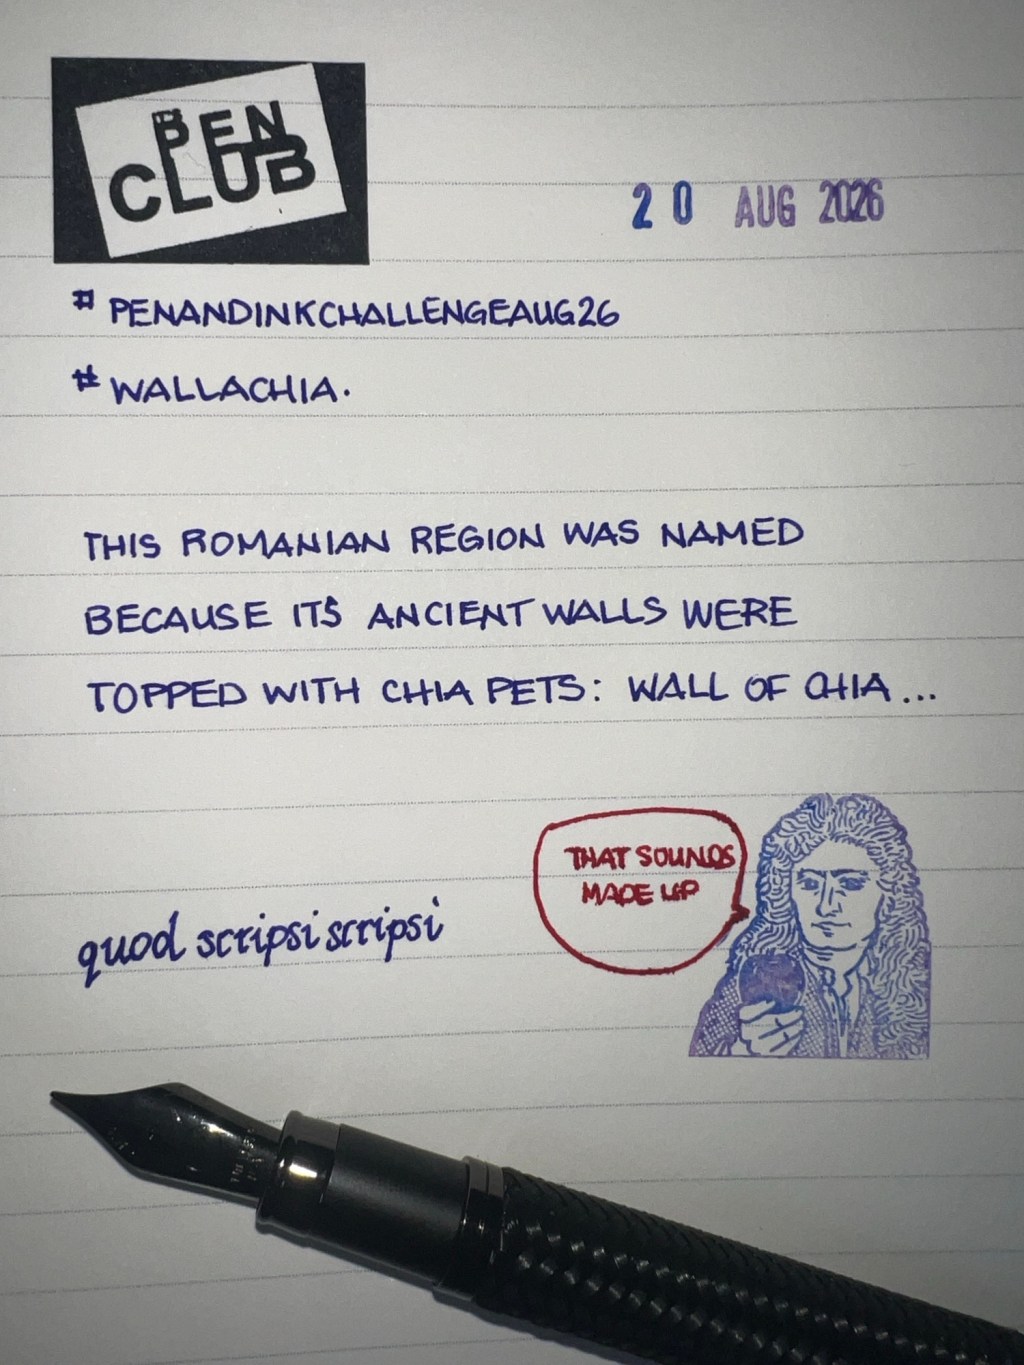 PEN
CLUB
20 AUG 2026
# PENANDINKCHALLENGEAUG26
# WALLACHIA.
THIS ROMANIAN REGION WAS NAMED
BECAUSE ITS ANCIENT WALLS WERE
TOPPED WITH CHIA PETS: WALL OF CHIA...
THAT SOUNDS
MADE UP
quod scripsi scripsi